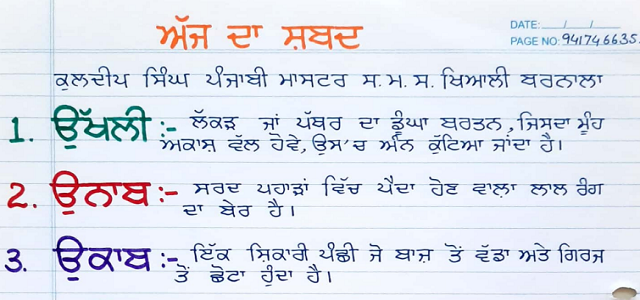 ਅੱਜ ਦਾ ਸ਼ਬਦ
DATE: __/__/__
PAGE NO: 941746635
ਕੁਲਦੀਪ ਸਿੰਘ ਪੰਜਾਬੀ ਮਾਸਟਰ ਸ.ਮ.ਸ. ਖਿਆਲੀ ਬਰਨਾਲਾ
1. ਉੱਖਲੀ :- ਲੱਕੜ ਜਾਂ ਪੱਥਰ ਦਾ ਡੂੰਘਾ ਬਰਤਨ, ਜਿਸਦਾ ਮੂੰਹ
ਅਕਾਸ਼ ਵੱਲ ਹੋਵੇ, ਉਸ'ਚ ਅੰਨ ਕੁੱਟਿਆ ਜਾਂਦਾ ਹੈ।
2. ਉਨਾਬ :- ਸਰਦ ਪਹਾੜਾਂ ਵਿੱਚ ਪੈਦਾ ਹੋਣ ਵਾਲਾ ਲਾਲ ਰੰਗ
ਦਾ ਬੇਰ ਹੈ।
3. ਉਕਾਬ :- ਇੱਕ ਸ਼ਿਕਾਰੀ ਪੰਛੀ ਜੋ ਬਾਜ਼ ਤੋਂ ਵੱਡਾ ਅਤੇ ਗਿਰਜ
ਤੋਂ ਛੋਟਾ ਹੁੰਦਾ ਹੈ।